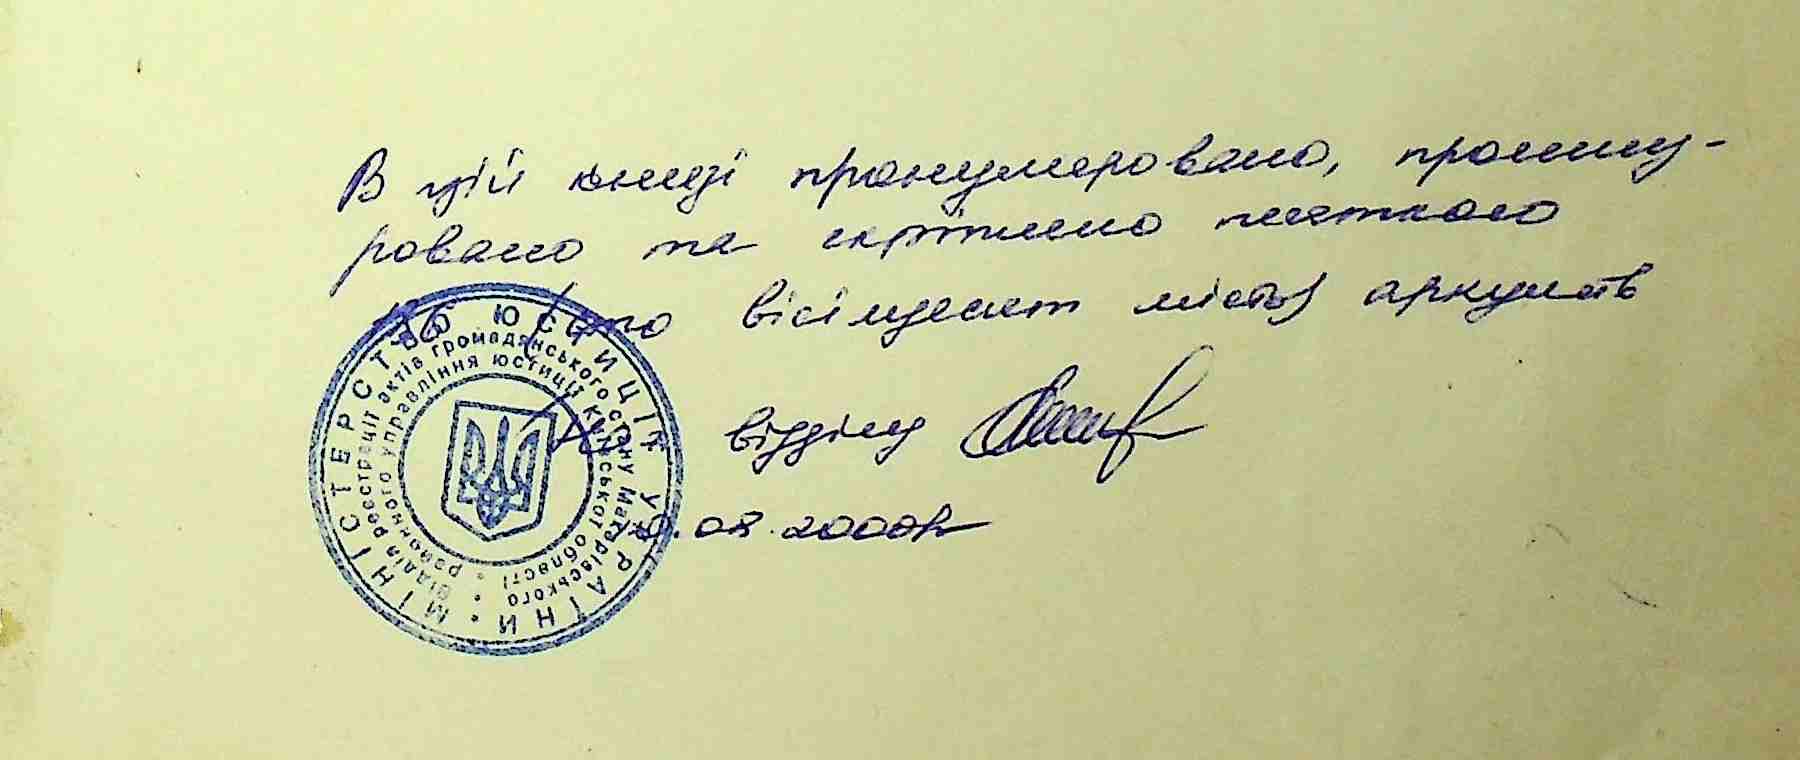 В цій книзі пронумеровано, прошну-
ровано та скріплено печаткою
186 (сто вісімдесят шість) аркушів
відділу
.08.2000р
МІНІСТЕРСТВО ЮСТИЦІЇ УКРАЇНИ
Відділ реєстрації актів громадянського стану Макарівського
районного управління юстиції Київської області